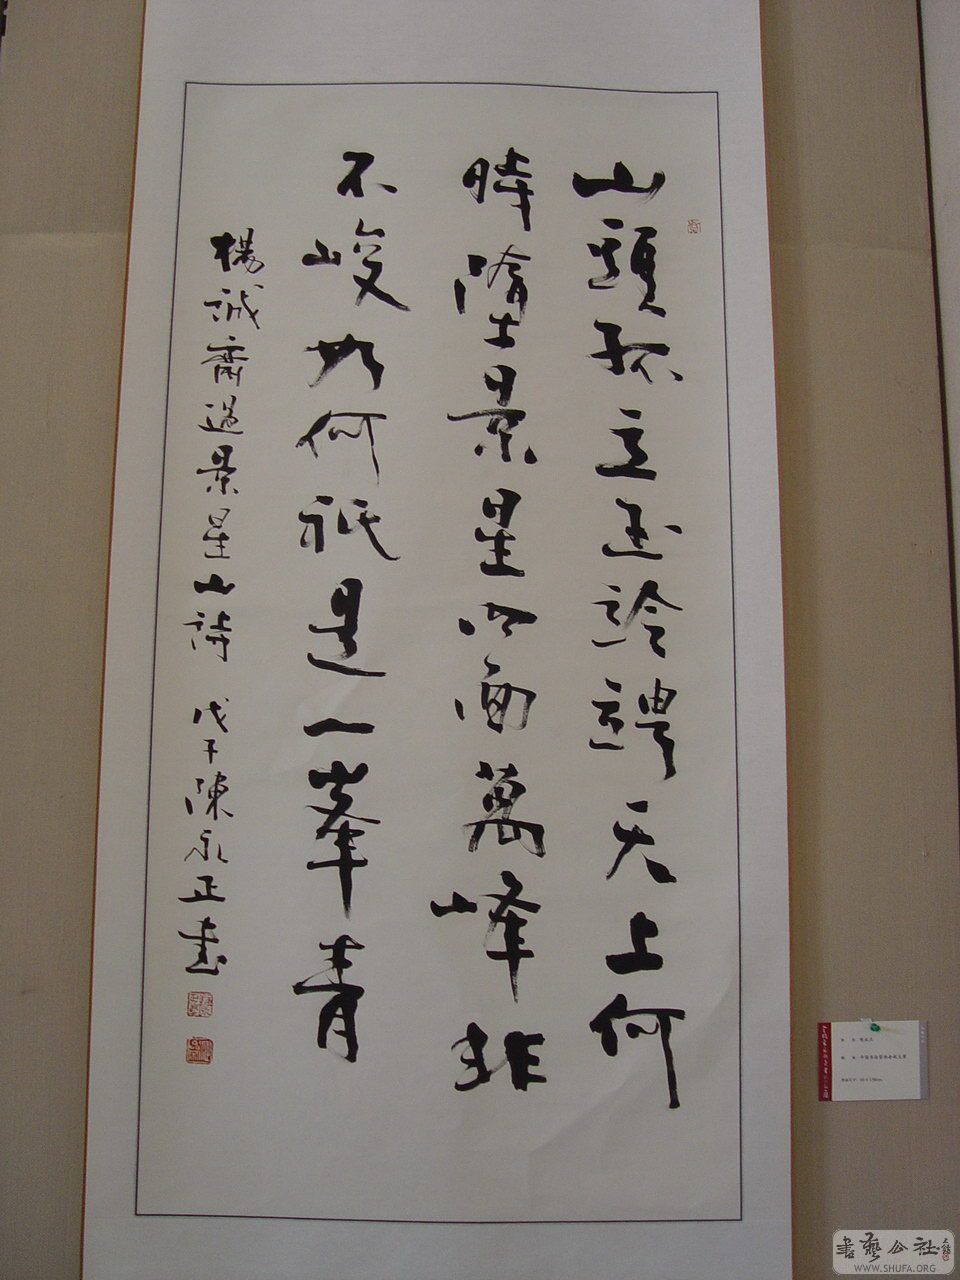 山頭孤立玉竛竮天上何
時墮景星四面萬峰非
不峻如何祇是一峯青
楊誠齋過景星山詩 戊子陳永正書
書藝公社
WWW.SHUFA.ORG